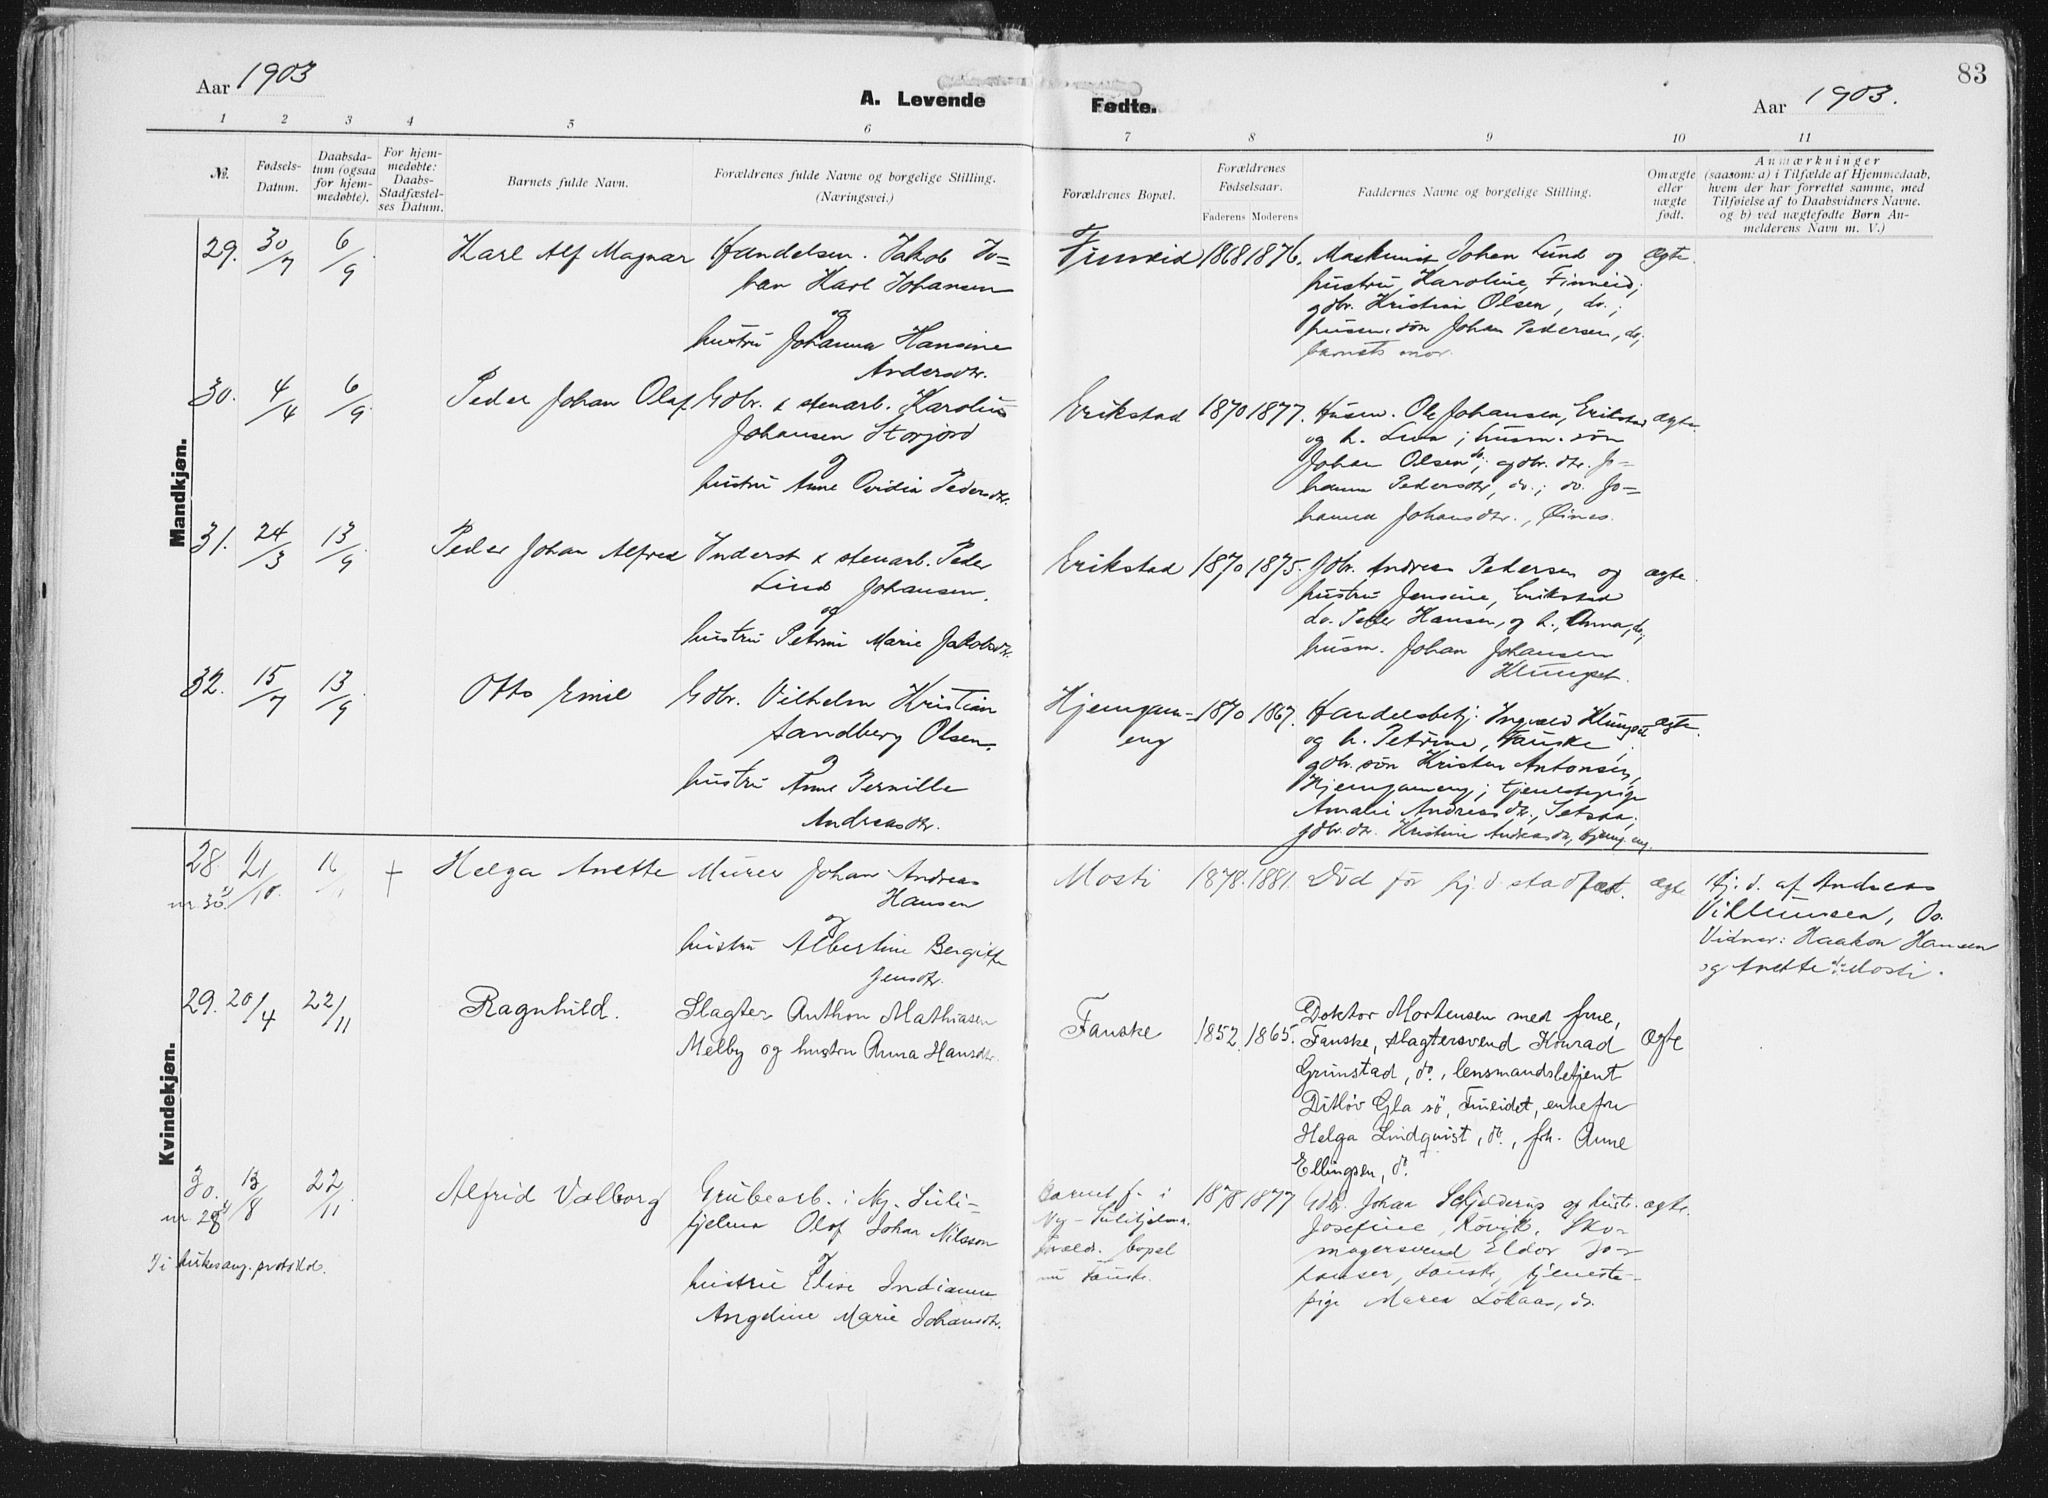 83
Aar 1903
A. Levende
Fødte.
Aar 1903.
1 2 3 4 5 6 7 8 9 10 11
№.
Fødsels-
Datum.
Daabsda-
tum (ogsaa
for hjem-
medøbte).
For hjem-
medøbte:
Daabs-
Stadfæstel-
ses Datum.
Barnets fulde Navn.
Forældrenes fulde Navne og borgelige Stilling.
(Næringsvei.)
Forældrenes Bopæl.
Forældrenes
Fødselsaar.
Faderens Moderens
Faddernes Navne og borgelige Stilling.
Omægte
eller
uægte
født.
Anmærkninger
(saasom: a) i Tilfælde af Hjemmedaab,
hvem der har forrettet samme, med
Tilføielse af to Daabsvidners Navne.
og b) ved uægtefødte Børn An-
melderens Navn m. V.)
Mandkjøn.
29. 30/7 6/9 Karl Alf Magnar
Handelsm. Jakob Jo-
han Karl Johansen
og
hustru Johanna Hansine
Andersdtr.
Finneid 1868 1876.
Maskinist Johan Lund og
hustru Karoline, Finneid;
gdbr. Kristian Olsen, do.;
husm. søn Johan Pedersen, do;
barnets mor.
Ægte.
30. 4/4 6/9 Peder Johan Olaf
Gdbr. & stenarb. Karolius
Johansen Storjord
og
hustru Anne Ovidia Pedersdtr.
Erikstad 1870 1877.
Husm. Ole Johansen, Erikstad
og h. Lina; husm. søn
Johan Olsen do; gdbr. dtr. Jo-
hanna Pedersdtr, do.; do. Jo-
hanna Johansdtr., Øines.
ægte.
31. 24/3 13/9 Peder Johan Alfred
Inderst & stenarb. Peder
Lind Johansen.
og
hustru Petrine Marie Jakobsdtr.
Erikstad 1870 1875.
Gdbr. Andreas Pedersen og
hustru Jensine, Erikstad
do. Peder Hansen, og h., Anna, do;
husm. Johan Johansen
Klungset.
ægte.
32. 15/7 13/9 Otto Emil
Gdbr. Vilhelm Kristian
Sandberg Olsen.
og
hustru Anne Pernille
Andreasdtr.
Hjemgam-
eng
1870 1867.
Handelsbetj. Ingvald Klungset
og h. Petrine, Fauske;
gdbr. søn Kristen Antonsen,
Hjemgameng; tjenestepige
Amalie Andreasdtr., Setsaa;
gdbr. dtr. Kristine Andreasdtr, Hjemg.eng.
ægte.
Kvindekjøn.
28. 21/10. 16/11 + Helga Anette
nr. 30
Murer Johan Andreas
Hansen
og
hustru Albertine Bergitte
Jensdtr.
Mosti 1878. 1881. Død før hj. d. stadfæst. ægte
Hj. d. af Andreas
Villumsen, do.
Vidner: Haakon Hansen
og Anette do Mosti.
29. 20/4 22/11 Ragnhild.
Slagter Anthon Mathiasen
Melby og hustru Anna Hansdtr.
Fauske 1852. 1865.
Doktor Mortensen med frue,
Fauske, slagtersvend Konrad
Grimstad, do., lensmandsbetjent
Ditløv Gla sø, Fineidet, enkefru
Helga Lindqvist, do., frk. Anne
Ellingsen, do.
Ægte
30. 13/8 22/11. Alfrid Valborg
nr. 28
I i kirkesang. protokol.
Grubearb. i Ny-Suli-
tjelma Olof Johan Nilsson
og
hustru Elise Indianna
Angeline Marie Johansdtr.
Barnet f. i
Ny-Sulitjelma.
Foræld. bopæl
nu Fauske.
1878 1877
Gdbr. Johan Schjelderup og hustr.
Josefine, Røvik, Sko-
magersvend Eldor Jo-
hansen, Fauske, tjeneste-
pige Maren Løkaas, do.
ægte.